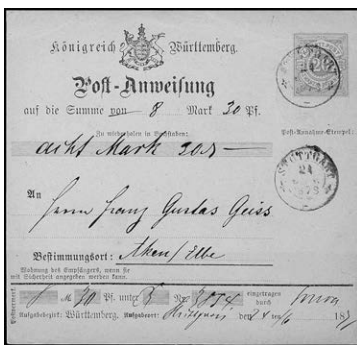 Königreich Württemberg.
Post-Anweisung
auf die Summe von 8 Mark 30 Pf.
Zu wiederholen in Buchstaben:
Post-Annahme-Stempel:
acht Mark 30
STUTTGART
24
An
Herrn Franz Gustav Geiss
Bestimmungsort: Aken / Elbe
Wohnung des Empfängers, wenn sie
mit Sicherheit angegeben werden kann.
8 M 30 Pf. unter Nr. eingetragen
durch
Aufgabegebiet: Württemberg. Aufgabeort: den 24